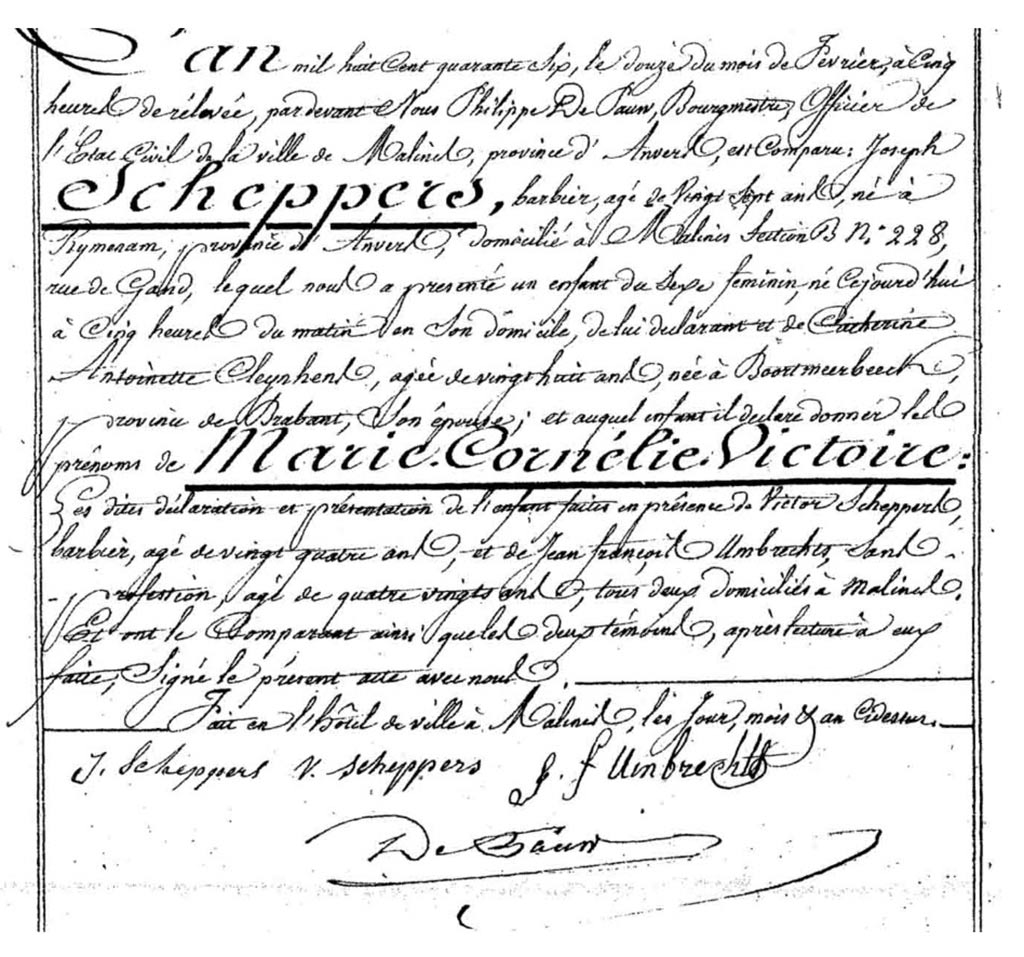 L'an mil huit Cent quarante Six, le douze du mois de Fevrier, à Cinq
heures de rélevée, par devant Nous Philippe De Pauw, Bourgmestre, Officier de
l'Etat Civil de la ville de Malines, province d' Anvers, est Comparu: Joseph
Scheppers, barbier, agé de Vingt Sept ans, né à
Rymenam, province d' Anvers, domicilié à Malines Section B N.° 228,
rue de Gand, lequel nous a presenté un enfant du Sexe feminin, né Cejourd'hui
à Cinq heures du matin en Son domicile, de lui declarant et de Catherine
Antoinette Cleynhens, agée de vingt huit ans, née à Boortmeerbeeck,
province de Brabant, Son épouse; et auquel enfant il declare donner les
prénoms de Marie. Cornélie. Victoire:
Les dites déclaration et présentation de l'enfant faites en présence de Victor Scheppers,
barbier, agé de vingt quatre ans, et de Jean françois Umbrechts, Sans
profession, agé de quatre vingts ans, tous deux domiciliés à Malines.
Et ont le Comparant ainsi que les deux témoins, après lecture à eux
faite, Signé le présent acte avec nous.
Fait en l'hôtel de ville à Malines, les Jour, mois & an Cidessus.
J. Scheppers V. Scheppers J. f Umbrechts
De Pauw